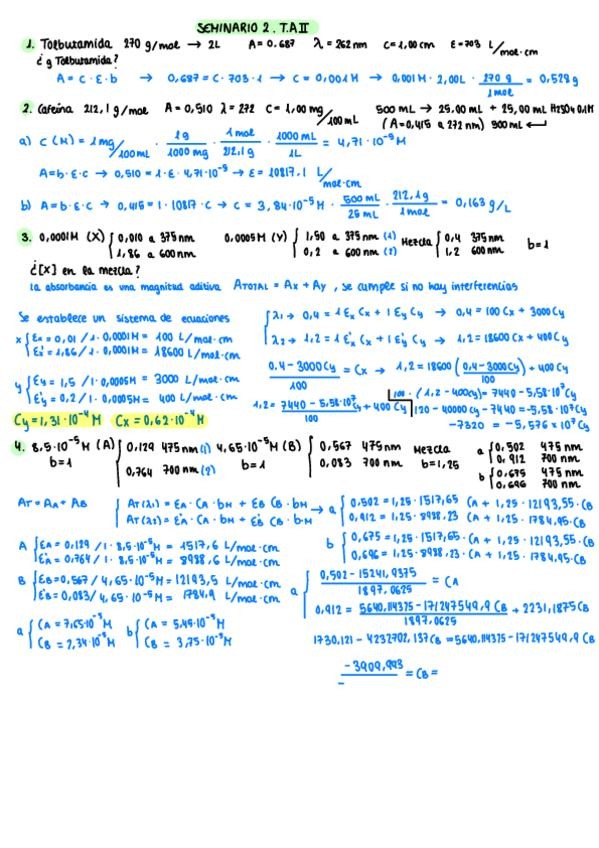 SEMINARIO 2. T.A II
1. Tolbutamida 270 g/mol → 2L A = 0.687 λ = 262nm C = 1,00 cm E = 703 L/mol·cm
¿g Tolbutamida?
A = C · E · b → 0,687 = C · 703 · 1 → C = 0,001 M → 0,001 M · 2,00L · 270 g / 1 mol = 0,528 g
2. Cafeína 212,1 g/mol A = 0,510 λ = 272 C = 1,00 mg/100 mL 500 mL → 25,00 mL + 25,00 mL H2SO4 0.1M
(A = 0,415 a 272 nm) 500 mL ←
a) C (M) = 1 mg/100 mL · 1 g / 1000 mg · 1 mol / 212,1 g · 1000 mL / 1L = 4,71 · 10⁻⁵ M
A = b · E · C → 0,510 = 1 · E · 4,71 · 10⁻⁵ → E = 10817,1 L/mol·cm
b) A = b · E · C → 0,415 = 1 · 10817 · C → C = 3,84 · 10⁻⁵ M · 500 mL / 25 mL · 212,1 g / 1 mol = 0,163 g/L
3. 0,0001M (X) { 0,010 a 375nm 0,0005M (Y) { 1,50 a 375nm (1) Mezcla { 0,4 375nm b = 1
1,86 a 600nm 0,2 a 600nm (2) 1,2 600nm
¿[X] en la mezcla?
La absorbancia es una magnitud aditiva ATOTAL = Ax + Ay , se cumple si no hay interferencias
Se establece un sistema de ecuaciones
{ λ1 → 0,4 = 1 Ex Cx + 1 Ey Cy → 0,4 = 100 Cx + 3000 Cy
x { Ex = 0,01 / 1 · 0,0001M = 100 L/mol·cm
λ2 → 1,2 = 1 E'x Cx + 1 E'y Cy → 1,2 = 18600 Cx + 400 Cy
E'x = 1,86 / 1 · 0,0001M = 18600 L/mol·cm
0,4 - 3000 Cy / 100 = Cx → 1,2 = 18600 (0,4 - 3000 Cy / 100) + 400 Cy
y { Ey = 1,5 / 1 · 0,0005M = 3000 L/mol·cm
E'y = 0,2 / 1 · 0,0005M = 400 L/mol·cm
1,2 = 7440 - 5,58·10⁷ Cy / 100 + 400 Cy
100 · (1,2 - 400Cy) = 7440 - 5,58·10⁷ Cy
120 - 40000 Cy - 7440 = -5,58·10⁷ Cy
Cy = 1,31·10⁻⁴ M Cx = 0,62·10⁻⁴ M
-7320 = -5,576 × 10⁷ Cy
4. 8,5·10⁻⁵ M (A) { 0,129 475nm (1) 4,65·10⁻⁵ M (B) { 0,567 475nm Mezcla a { 0,502 475 nm
b = 1 0,764 700 nm (2) b = 1 0,083 700 nm b = 1,25 0,912 700 nm
b { 0,675 475 nm
0,696 700 nm
AT = AA + AB { AT (λ1) = EA · CA · bM + EB CB · bM → a { 0,502 = 1,25 · 1517,65 CA + 1,25 · 12193,55 · CB
AT (λ2) = E'A · CA · bM + E'B CB · b·M 0,912 = 1,25 · 8988,23 CA + 1,25 · 1784,95 · CB
b { 0,675 = 1,25 · 1517,65 · CA + 1,25 · 12193,55 · CB
0,696 = 1,25 · 8988,23 · CA + 1,25 · 1784,95 · CB
A { EA = 0,129 / 1 · 8,5·10⁻⁵ M = 1517,6 L/mol·cm
E'A = 0,764 / 1 · 8,5·10⁻⁵ M = 8988,6 L/mol·cm
B { EB = 0,567 / 4,65·10⁻⁵ M = 12193,5 L/mol·cm
E'B = 0,083 / 4,65·10⁻⁵ M = 1784,9 L/mol·cm
a { 0,502 - 15241,9375 / 1897,0625 = CA
0,912 = 5640,114375 - 171247549,9 CB / 1897,0625 + 2231,1875 CB
a { CA = 7,65·10⁻⁵ M b { CA = 5,49·10⁻⁵ M
CB = 2,34·10⁻⁵ M CB = 3,75·10⁻⁵ M
1730,121 - 4232702,137 CB = 5640,114375 - 171247549,9 CB
-3909,993 / - = CB =